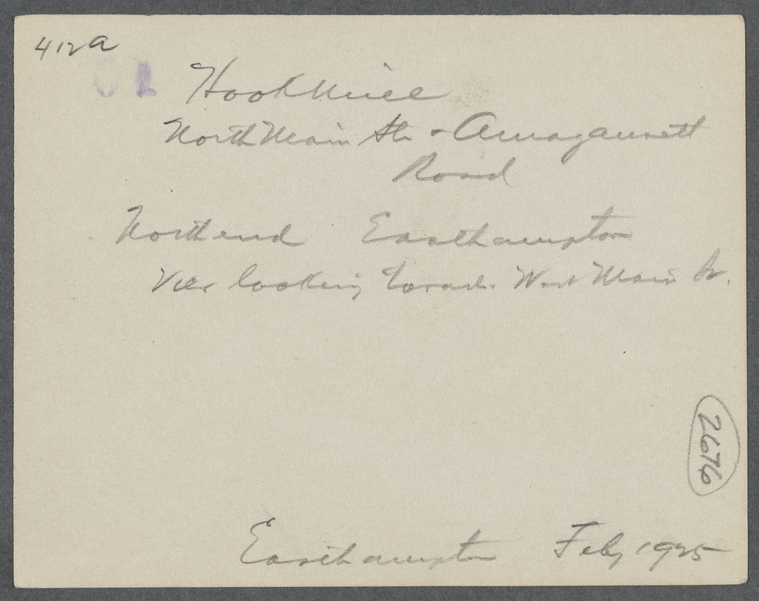 412a
Hook Mill
North Main St + Amagansett
Road
North end Easthampton
View looking towards West Main St.
2676
Easthampton Feby 1925